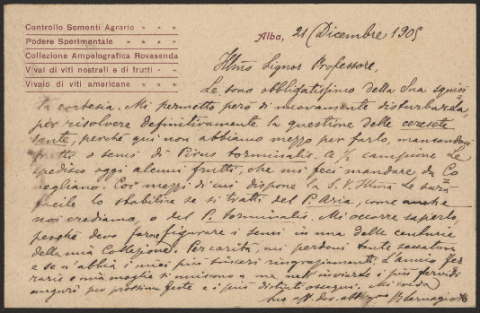 Controllo Sementi Agrario
Podere Sperimentale
Collezione Ampelografica Rovasenda
Vivai di viti nostrali e di frutti
Vivaio di viti americane
Alba, 21 Dicembre 1905
Illmo Signor Professore,
Le sono obbligatissimo della Sua squisi
ta cortesia. Mi permetto però di nuovamente disturbarla,
per risolvere definitivamente la questione delle
perchè qui non abbiamo mezzo per farlo, mancandoci
frutti e semi di Pirus torminalis. A campione Le
spedisco oggi alcuni frutti, che mi feci mandare da Co
negliano. Coi mezzi di cui dispone la S. V. Illma Le sarà
facile lo stabilire se si tratti del P. Aria, come anche
noi crediamo, o del P. torminalis. Mi occorre saperlo,
perchè devo farne figurare i semi in una delle centurie
della mia Collezione. Per carità, mi perdoni tante seccature
e se n'abbia i miei più sinceri ringraziamenti. L'amico Fer
rari e mia moglie si uniscono a me nell'inviarle i più fervidi
auguri per prossime feste e i più distinti ossequi. Mi creda
Suo